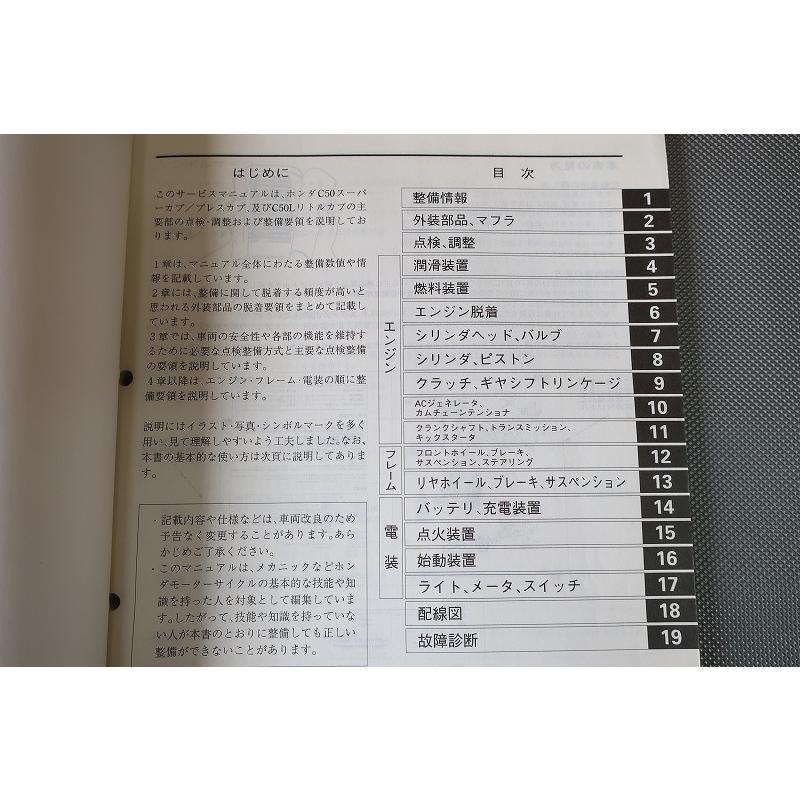 はじめに
このサービスマニュアルは、ホンダC50スーパ
ーカブ／プレスカブ、及びC50Lリトルカブの主
要部の点検・調整および整備要領を説明してお
ります。
1章は、マニュアル全体にわたる整備数値や情
報を記載しています。
2章には、整備に関して脱着する頻度が高いと
思われる外装部品の脱着要領をまとめて記載し
ています。
3章では、車両の安全性や各部の機能を維持す
るために必要な点検整備方式と主要な点検整備
の要領を説明しています。
4章以降は、エンジン・フレーム・電装の順に整
備要領を説明しています。
説明にはイラスト・写真・シンボルマークを多く
用い、見て理解しやすいよう工夫しました。なお、
本書の基本的な使い方は次頁に説明してありま
す。
・記載内容や仕様などは、車両改良のため
予告なく変更することがあります。あら
かじめご了承ください。
・このマニュアルは、メカニックなどホン
ダモーターサイクルの基本的な技能や知
識を持った人を対象として編集していま
す。したがって、技能や知識を持っていな
い人が本書のとおりに整備しても正しい
整備ができないことがあります。
目 次
整備情報 1
外装部品、マフラ 2
点検、調整 3
エンジン
潤滑装置 4
燃料装置 5
エンジン脱着 6
シリンダヘッド、バルブ 7
シリンダ、ピストン 8
クラッチ、ギヤシフトリンケージ 9
ACジェネレータ、
カムチェーンテンショナ 10
クランクシャフト、トランスミッション、
キックスタータ 11
フレーム
フロントホイール、ブレーキ、
サスペンション、ステアリング 12
リヤホイール、ブレーキ、サスペンション 13
電装
バッテリ、充電装置 14
点火装置 15
始動装置 16
ライト、メータ、スイッチ 17
配線図 18
故障診断 19